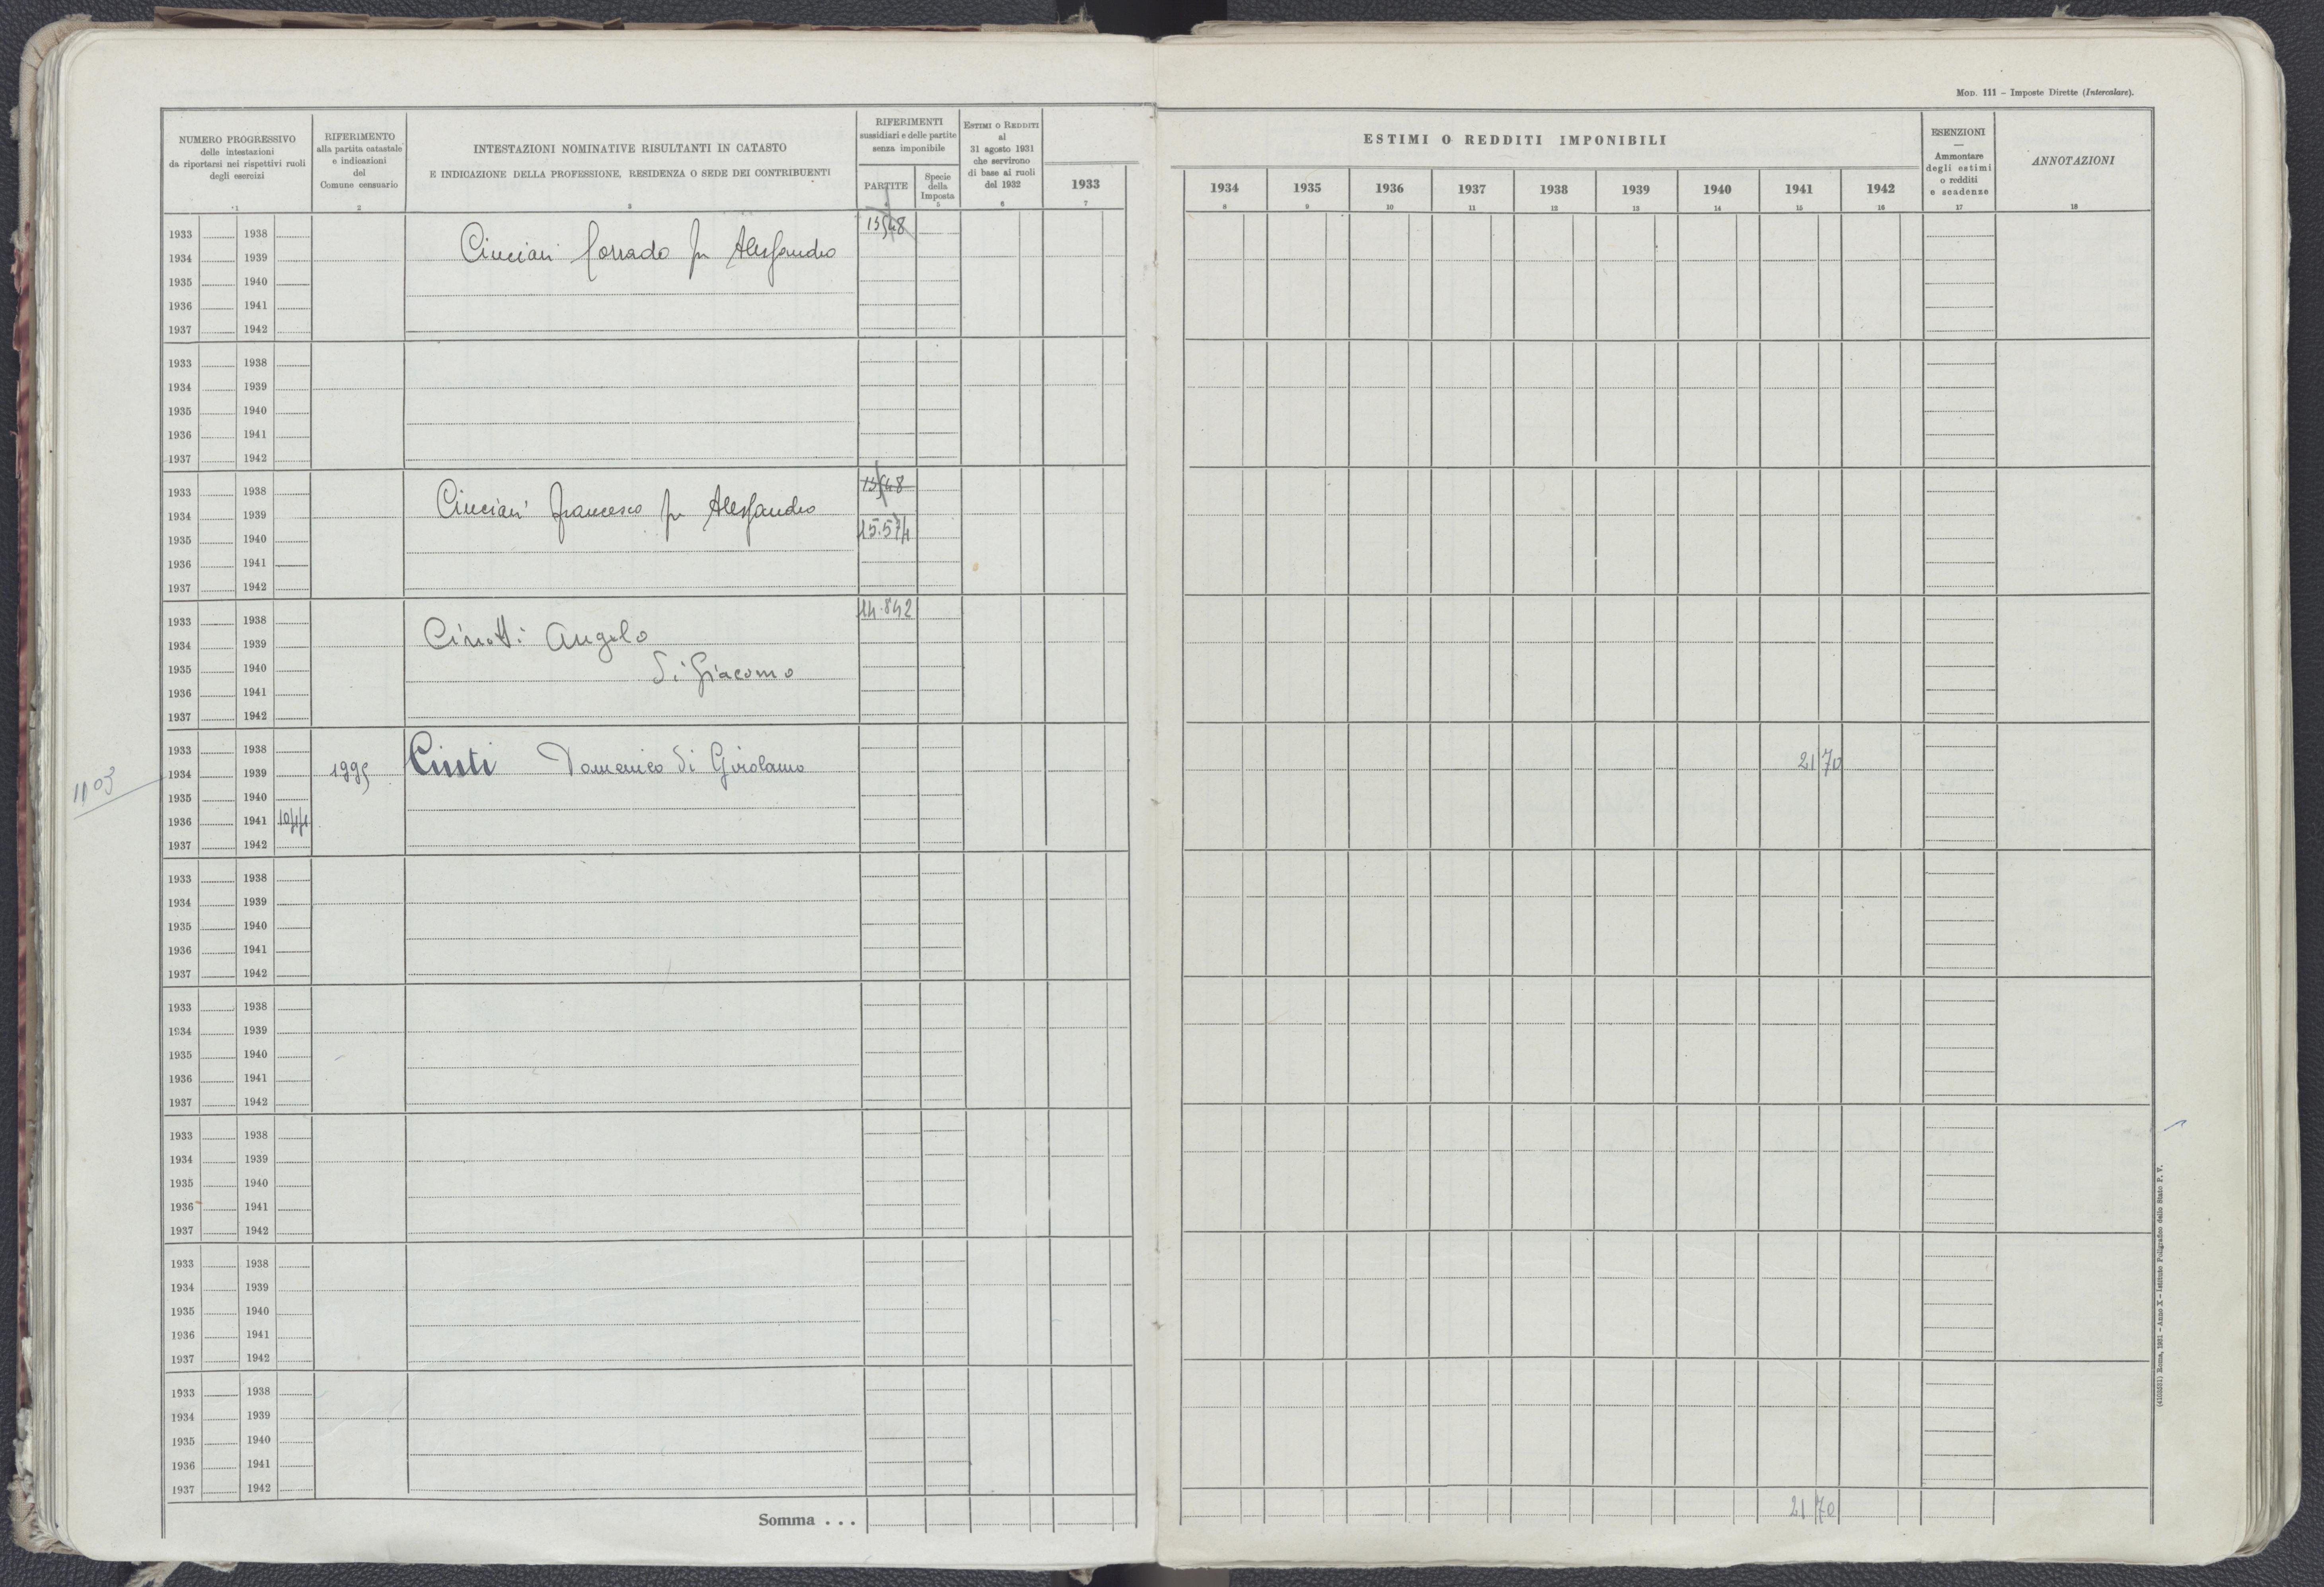 MOD. 111 – Imposte Dirette (Intercalare).
NUMERO PROGRESSIVO
delle intestazioni
da riportarsi nei rispettivi ruoli
degli esercizi
1
RIFERIMENTO
alla partita catastale
e indicazioni
del
Comune censuario
2
INTESTAZIONI NOMINATIVE RISULTANTI IN CATASTO
E INDICAZIONE DELLA PROFESSIONE, RESIDENZA O SEDE DEI CONTRIBUENTI
3
RIFERIMENTI
sussidiari e delle partite
senza imponibile
PARTITE
4
Specie
della
Imposta
5
ESTIMI O REDDITI
al
31 agosto 1931
che servirono
di base ai ruoli
del 1932
6
1933
7
ESTIMI O REDDITI IMPONIBILI
1934 1935 1936 1937 1938 1939 1940 1941 1942
8 9 10 11 12 13 14 15 16
ESENZIONI
—
Ammontare
degli estimi
o redditi
e scadenze
17
ANNOTAZIONI
18
1933 1938 1548
1934 1939 Cinciari Corrado fu Alessandro
1935 1940
1936 1941
1937 1942
1933 1938
1934 1939
1935 1940
1936 1941
1937 1942
1933 1938
1934 1939 Cinciari Francesco fu Alessandro
1935 1940 15.574
1936 1941
1937 1942
1933 1938 14.842
1934 1939 Cinotti Angelo
1935 1940 di Giacomo
1936 1941
1937 1942
1933 1938
1103 1934 1939 1995 Cinti Domenico di Girolamo 21 70
1935 1940
1936 1941 1044
1937 1942
1933 1938
1934 1939
1935 1940
1936 1941
1937 1942
1933 1938
1934 1939
1935 1940
1936 1941
1937 1942
1933 1938
1934 1939
1935 1940
1936 1941
1937 1942
1933 1938
1934 1939
1935 1940
1936 1941
1937 1942
1933 1938
1934 1939
1935 1940
1936 1941
1937 1942
Somma . . . 21 70
Roma, 1931 – Anno X – Istituto Poligrafico dello Stato P. V.